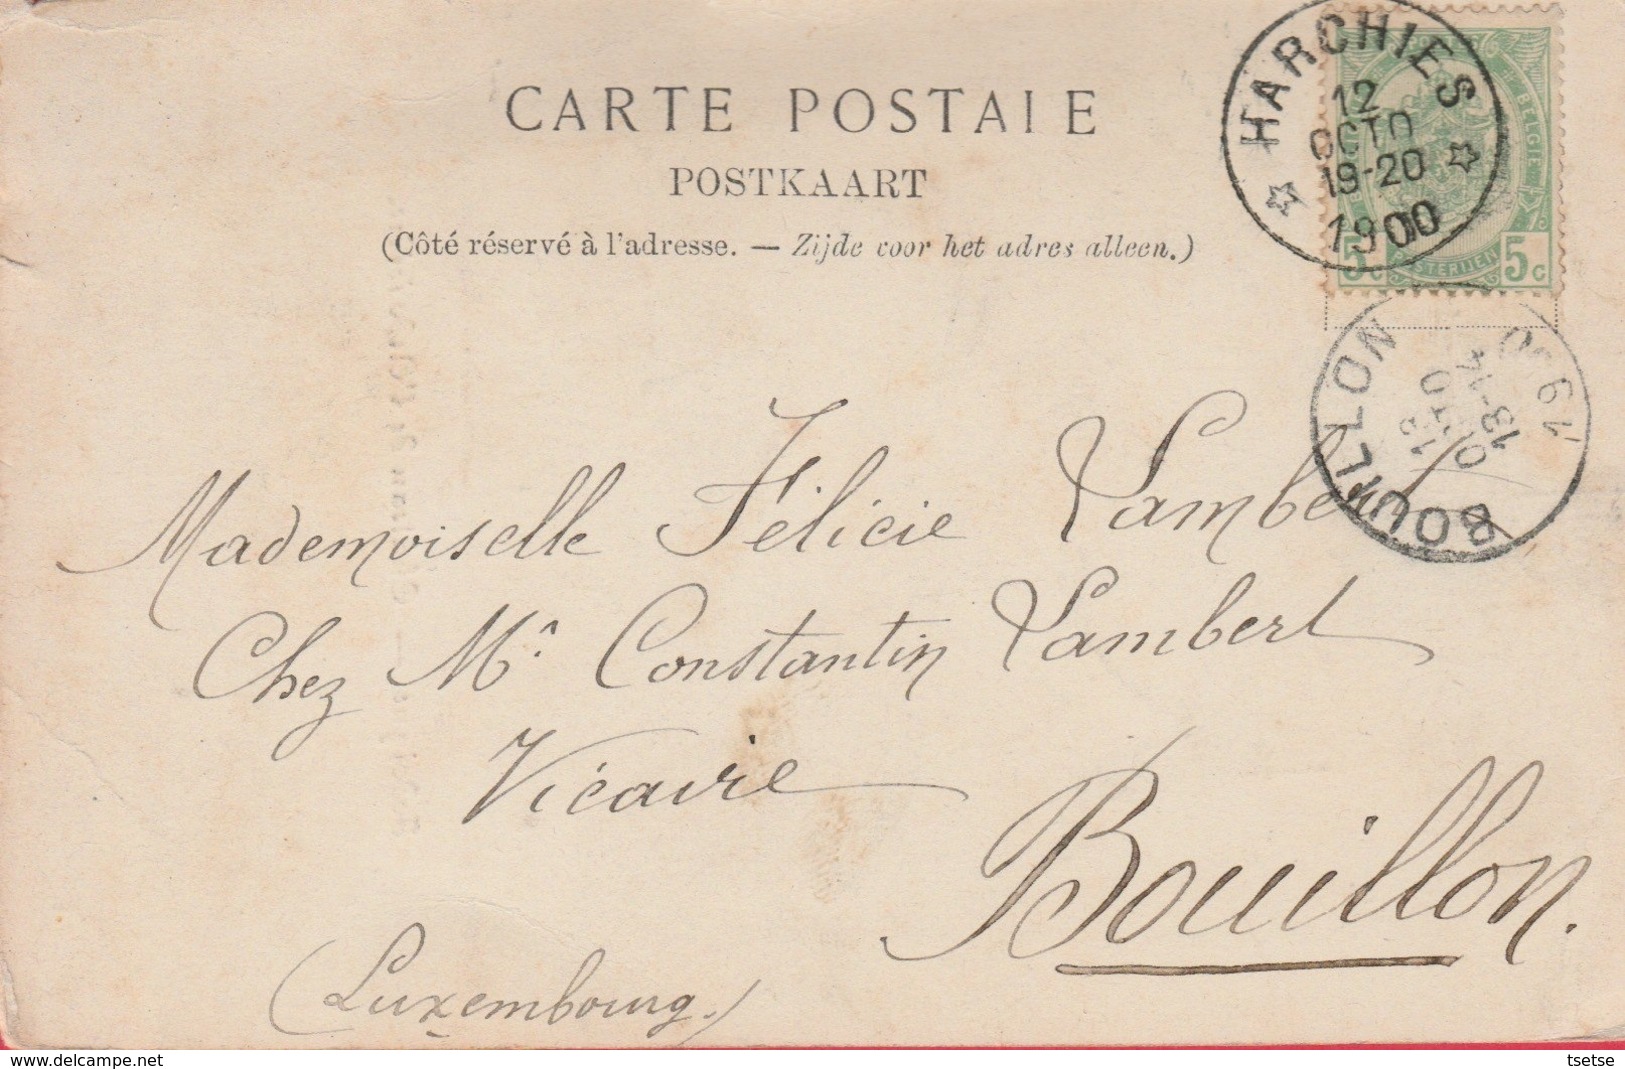 CARTE POSTALE
POSTKAART
(Côté réservé à l'adresse. — Zijde voor het adres alleen.)
HARCHIES
12
OCTO
19-20
1900
BELGIE
POSTERIJEN
5c 5c
BOUILLON
13-14
Mademoiselle Félicie Lambert
Chez Mr Constantin Lambert
Vicaire
Bouillon.
(Luxembourg.)
https://www.delcampe.net
tsetse